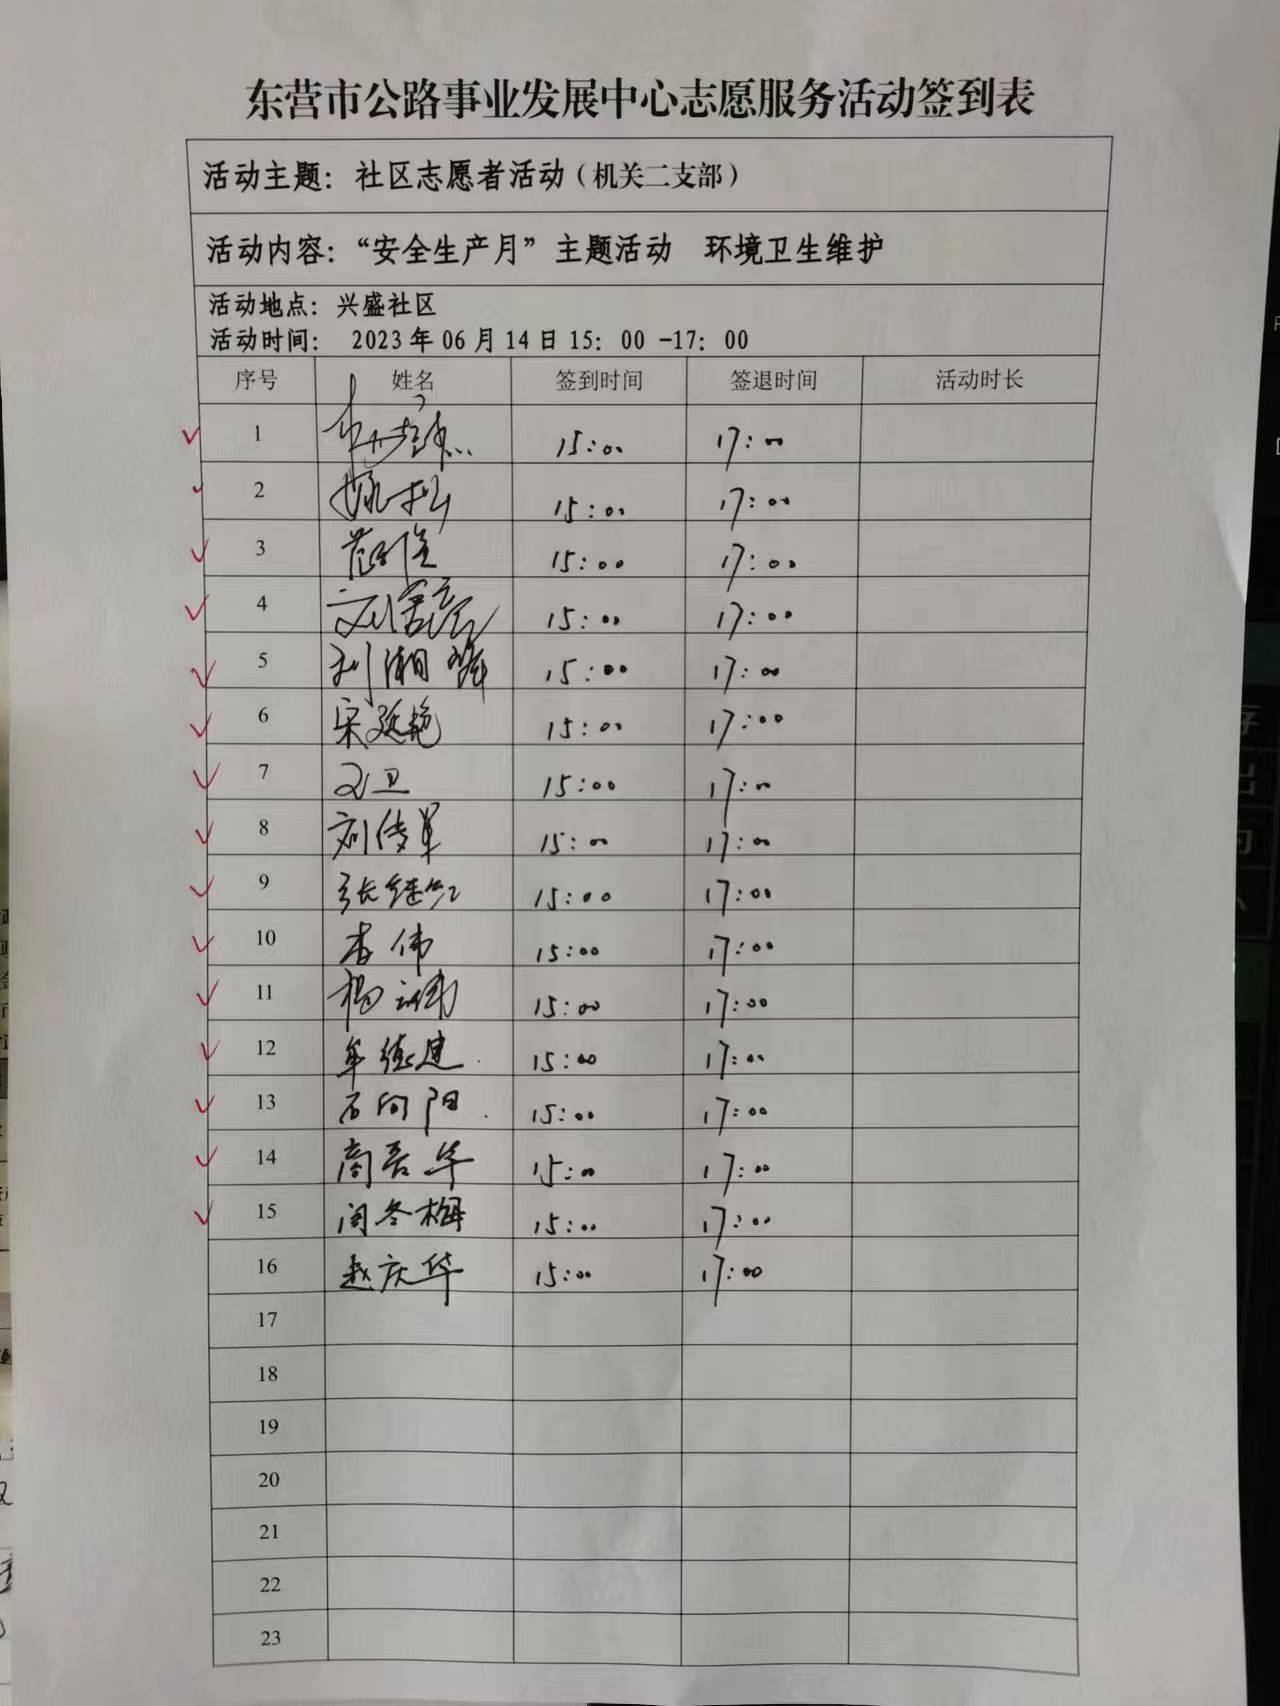 东营市公路事业发展中心志愿服务活动签到表
活动主题：社区志愿者活动（机关二支部）
活动内容：“安全生产月”主题活动 环境卫生维护
活动地点：兴盛社区
活动时间： 2023年06月14日15：00 -17：00
序号 姓名 签到时间 签退时间 活动时长
1 15:00 17:00
2 姚松 15:00 17:00
3 15:00 17:00
4 15:00 17:00
5 刘湘峰 15:00 17:00
6 宋延艳 15:00 17:00
7 卫 15:00 17:00
8 刘传军 15:00 17:00
9 张继红 15:00 17:00
10 李伟 15:00 17:00
11 杨 15:00 17:00
12 牟德建 15:00 17:00
13 石向阳 15:00 17:00
14 商吾华 15:00 17:00
15 闫冬梅 15:00 17:00
16 赵庆华 15:00 17:00
17
18
19
20
21
22
23